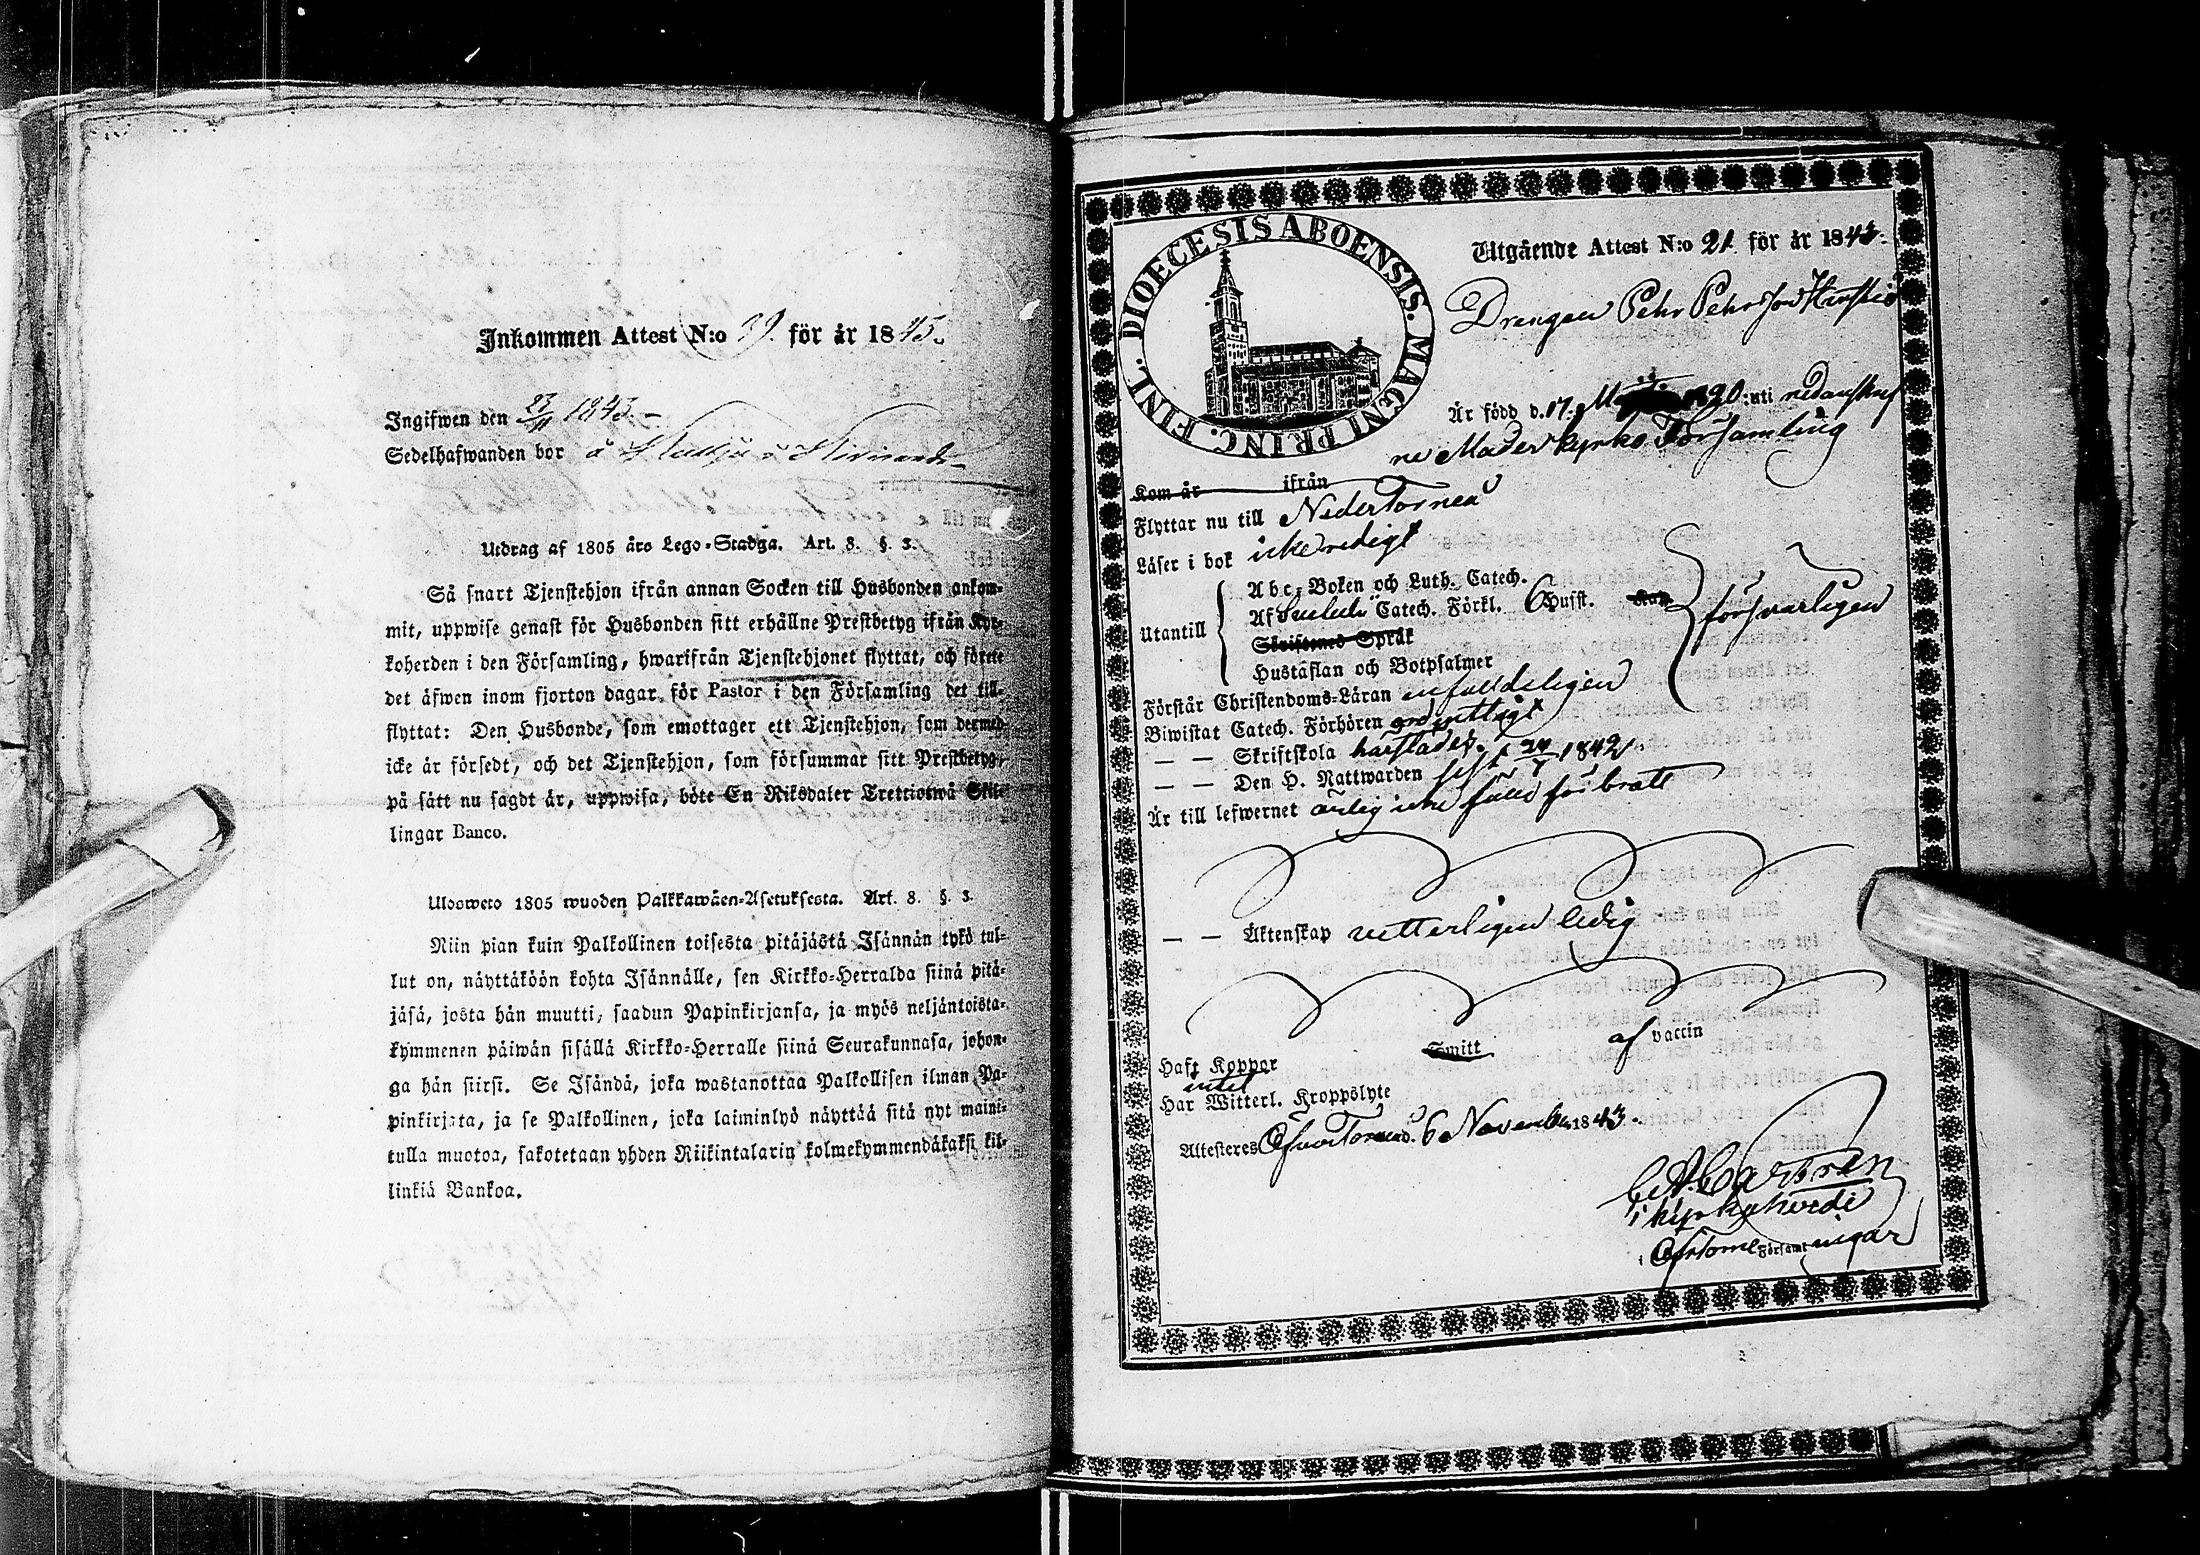 Inkommen Attest N:o 39. för år 1845.
Ingifwen den 23/11 1843.
Sedelhafwanden bor å
Utdrag af 1805 års Lego-Stadga. Art. 8. §. 3.
Så snart Tjenstehjon ifrån annan Socken till Husbonden ankom-
mit, uppwise genast för Husbonden sitt erhållne Prestbetyg ifrån Kyr-
koherden i den Församling, hwarifrån Tjenstehjonet flyttat, och förete
det äfwen inom fjorton dagar för Pastor i den Församling det till-
flyttat: Den Husbonde, som emottager ett Tjenstehjon, som dermed
icke är försedt, och det Tjenstehjon, som försummar sitt Prestbetyg,
på sätt nu sagdt är, uppwisa, böte En Riksdaler Trettiotwå Skil-
lingar Banco.
Ulosweto 1805 wuoden Palkkawäen-Asetuksesta. Art. 8. §. 3.
Niin pian kuin Palkollinen toisesta pitäjästä Isännän tykö tul-
lut on, näyttäköön kohta Isännälle, sen Kirkko-Herralda siinä pitä-
jäsä, josta hän muutti, saadun Papinkirjansa, ja myös neljäntoista-
kymmenen päiwän sisällä Kirkko-Herralle siinä Seurakunnasa, johon-
ga hän siirsi. Se Isändä, joka wastanottaa Palkollisen ilman Pa-
pinkirjata, ja se Palkollinen, joka laiminlyö näyttää sitä nyt maini-
tulla muotoa, sakotetaan yhden Riikintalarin kolmekymmendäkaksi kil-
linkiä Bankoa.
DIOECESIS ABOENSIS. MAGNI PRINC. FINL.
Utgående Attest N:o 21 för år 1843.
Drengen Pehr Pehrsson
Är född d. 17. 1820 uti nedanskref
ne Moderkyrko Församling
Kom år ifrån
Flyttar nu till NederTorneå
Läser i bok icke redigt
Utantill
Abc-Boken och Luth. Catech.
Af Catech. Förkl. Husst.
Skriftenes Språk
Hustaflan och Botpsalmer
försvarligen
Förstår Christendoms-Läran enfaldeligen
Biwistat Catech. Förhören ordentligt
— — Skriftskola
— — Den H. Nattwarden sist 24/7 1842
Är till lefwernet ärlig
— — Äktenskap vetterligen ledig
Haft Koppor Smitt af vaccin
intet
Har Witterl. Kroppslyte
Attesteras ÖfverTorneå d. 6 November 1843.
Castren
kyrkoherde
i ÖfrTorne Församlingar